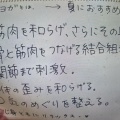 ヨガとは、→身におすすめ
筋肉を和らげ、さらにその
骨と筋肉をつなげる結合組
関節まで刺激。
体の歪みを和らげる。
気のめぐりを整える。